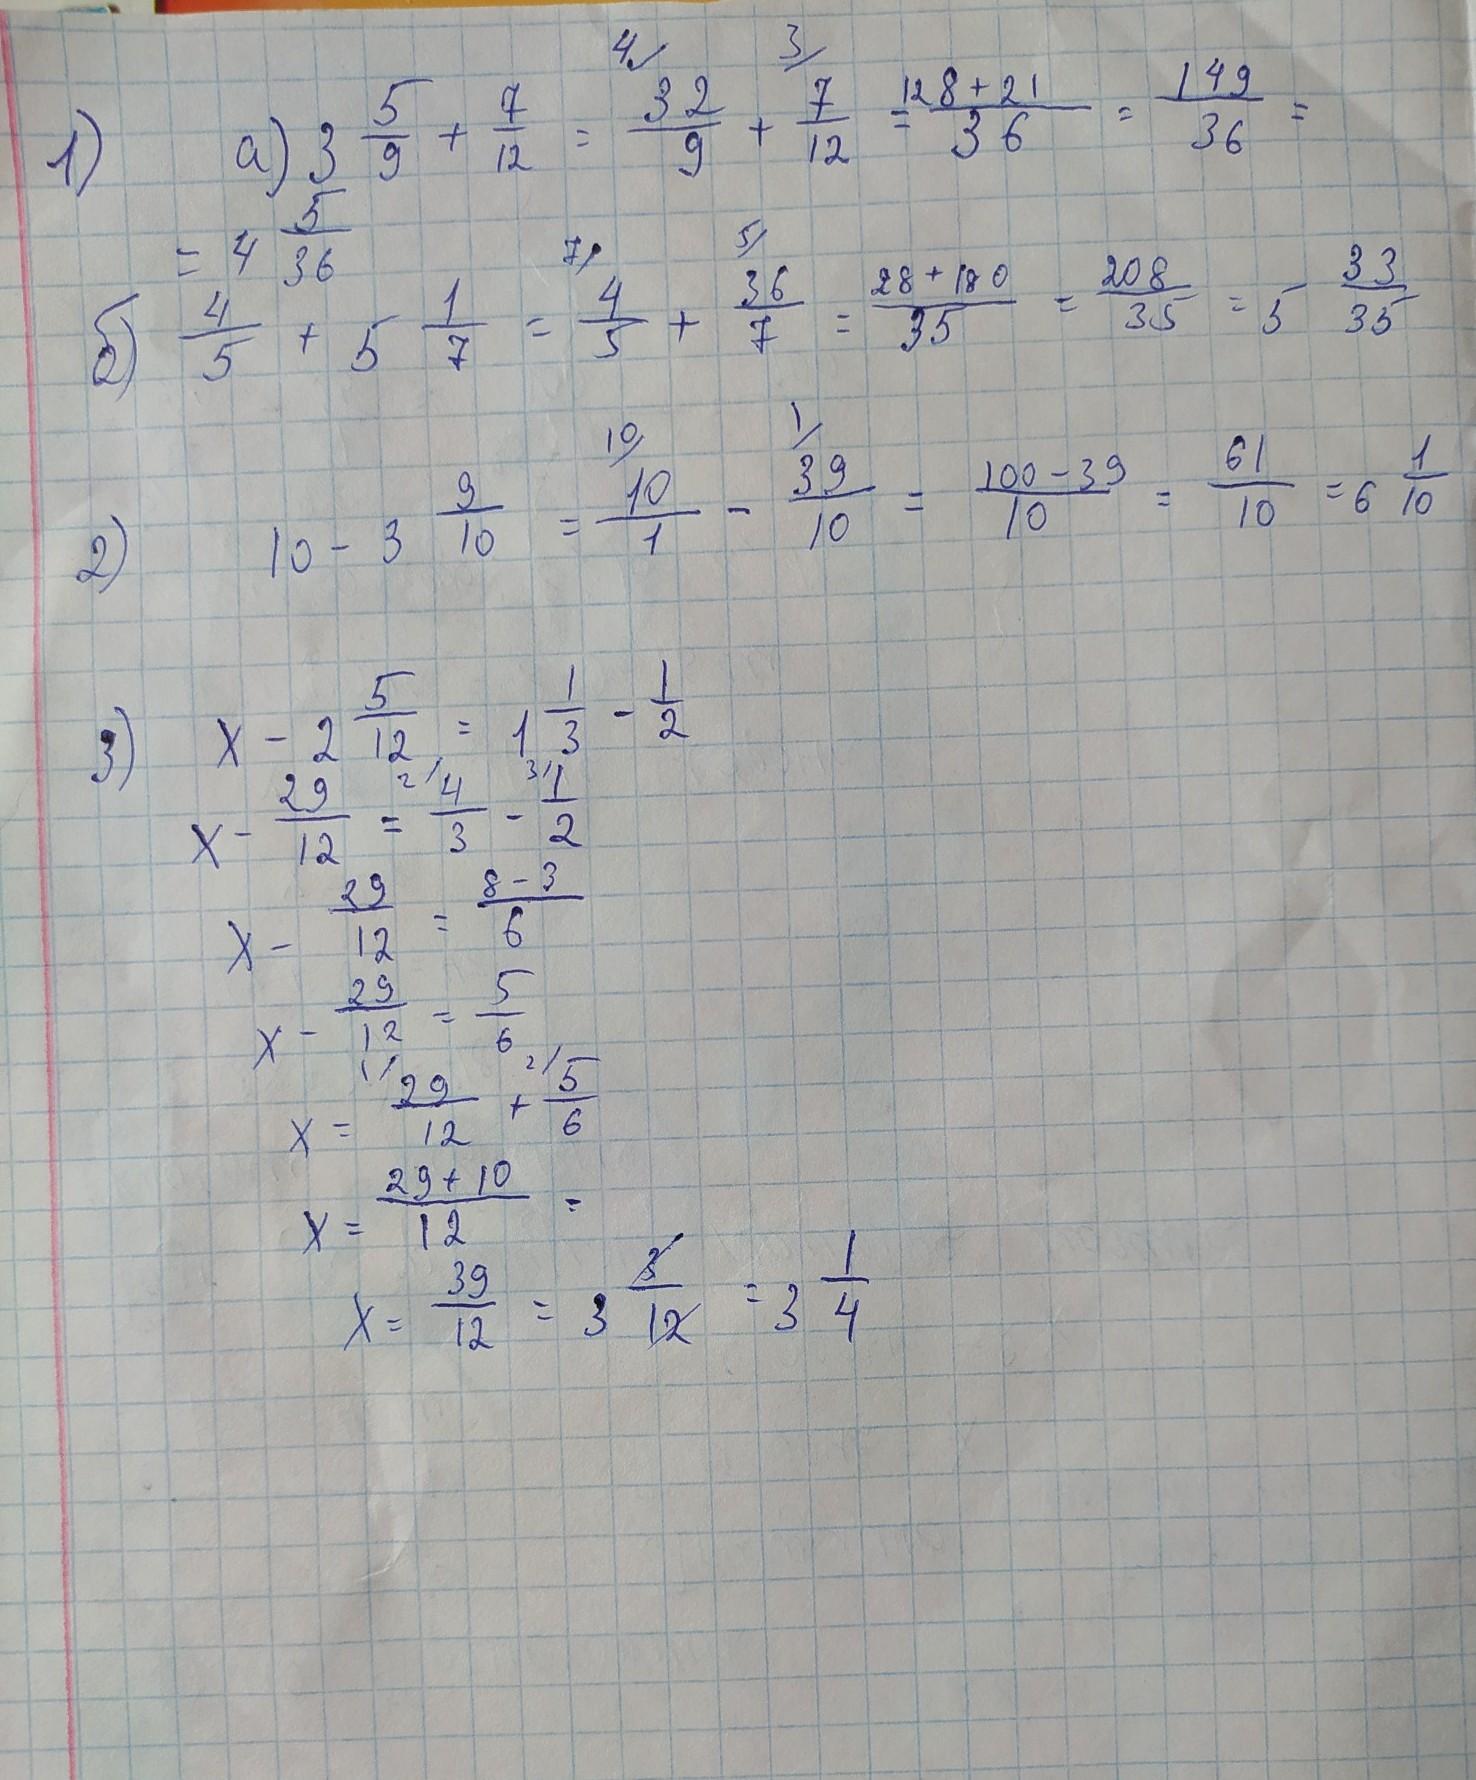 1) а) 3 5/9 + 7/12 = 4/ 32/9 + 3/ 7/12 = 128+21/36 = 149/36 =
= 4 5/36
б) 4/5 + 5 1/7 = 7/ 4/5 + 5/ 36/7 = 28+180/35 = 208/35 = 5 33/35
2) 10 - 3 9/10 = 10/ 10/1 - 1/ 39/10 = 100-39/10 = 61/10 = 6 1/10
3) x - 2 5/12 = 1 1/3 - 1/2
x - 29/12 = 2/ 4/3 - 3/ 1/2
x - 29/12 = 8-3/6
x - 29/12 = 5/6
x = 1/ 29/12 + 2/ 5/6
x = 29+10/12 =
x = 39/12 = 3 3/12 = 3 1/4